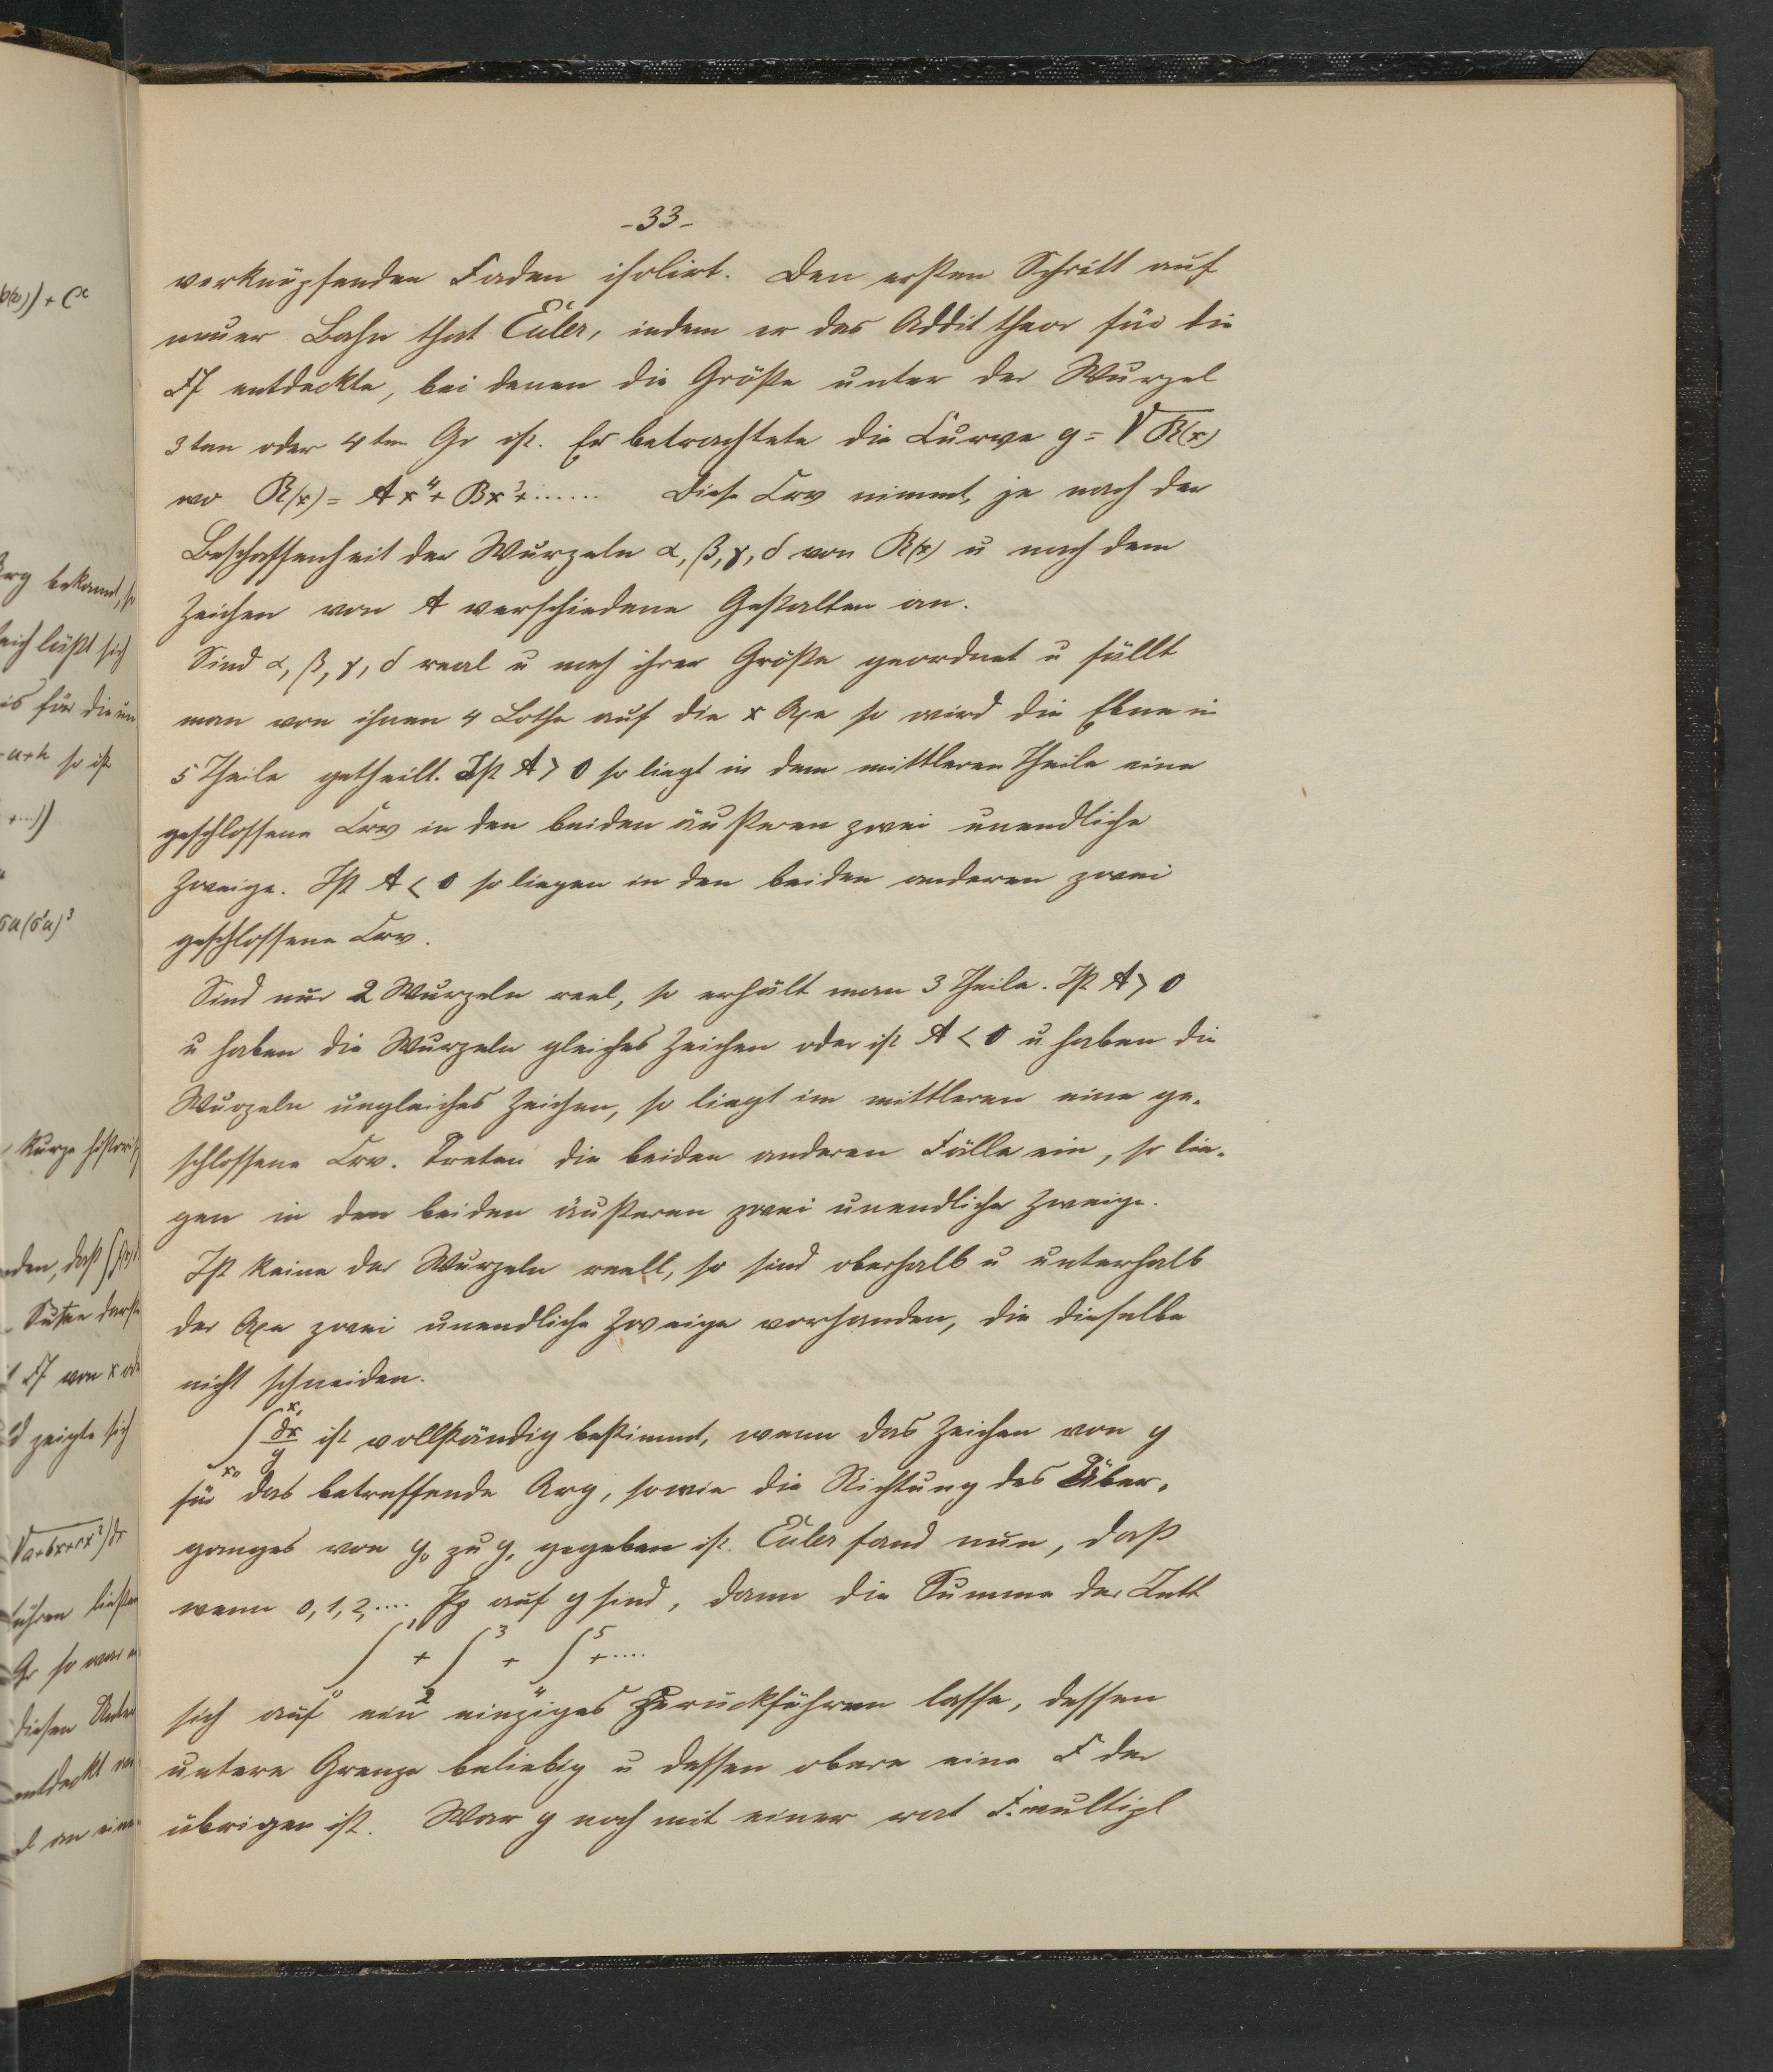 -33-
verknüpfenden Faden isolirt. Den ersten Schritt auf
neuer Bahn that Euler, indem er das Addit theor für die
Ff entdeckte, bei denen die Größe unter der Wurzel
3ten oder 4ten Gr ist. Er betrachtete die Curve y = √R(x)
wo R(x) = Ax⁴ + Bx³ + ...... Diese Crv nimmt, je nach der
Beschaffenheit der Wurzeln α, β, γ, δ von R(x) u nach dem
Zeichen von A verschiedene Gestalten an.
Sind α, β, γ, δ real u nach ihrer Größe geordnet u fällt
man von ihnen 4 Lothe auf die x Axe so wird die Ebne in
5 Theile getheilt. Ist A > 0 so liegt in dem mittleren Theile eine
geschlossene Crv in den beiden äußeren zwei unendliche
Zweige. Ist A < 0 so liegen in den beiden anderen zwei
geschlossene Crv.
Sind nur 2 Wurzeln reel, so erhält man 3 Theile. Ist A > 0
u haben die Wurzeln gleiches Zeichen oder ist A < 0 u haben die
Wurzeln ungleiches Zeichen, so liegt im mittleren eine ge-
schlossene Crv. Treten die beiden anderen Fälle ein, so lie-
gen in den beiden äußeren zwei unendliche Zweige.
Ist keine der Wurzeln reell, so sind oberhalb u unterhalb
der Axe zwei unendliche Zweige vorhanden, die dieselbe
nicht schneiden.
∫_{x₀}^{x₁} dx/y ist vollständig bestimmt, wenn das Zeichen von y
für das betreffende Arg, sowie die Richtung des Über-
ganges von y₀ zu y₁ gegeben ist. Euler fand nun, daß
wenn 0, 1, 2, .... Pp auf y sind, dann die Summe der Intt
∫₀¹ + ∫₂³ + ∫₄⁵ + ....
sich auf ein einziges zurückführen lasse, dessen
untere Grenze beliebig u dessen obere eine F der
übrigen ist. War y noch mit einer rat F. multipl